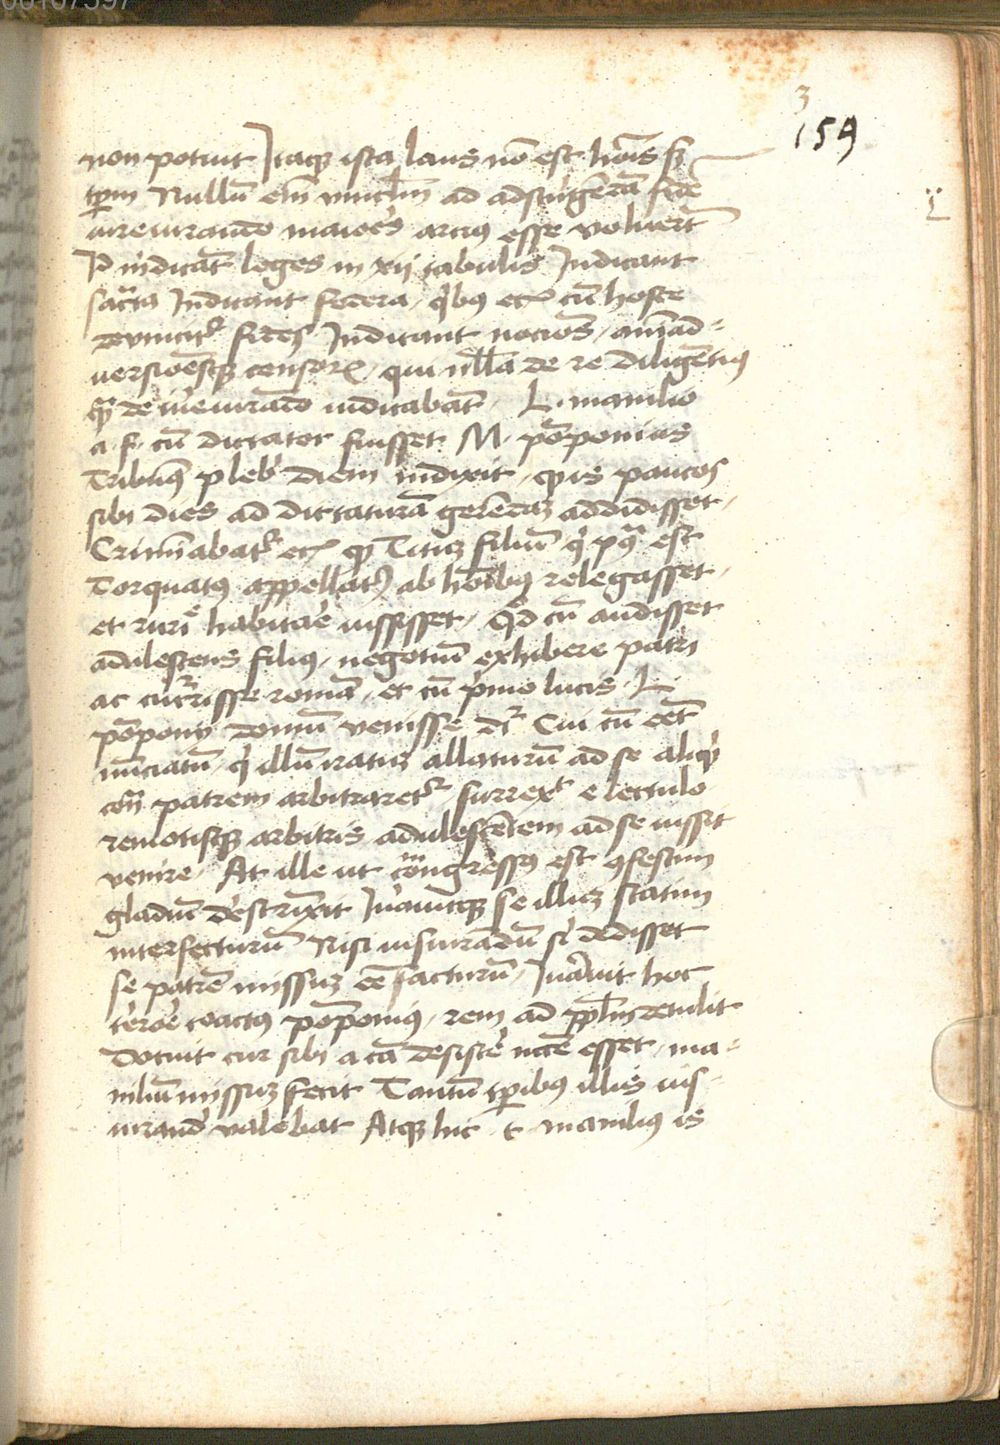 00107397
3
159
non potuit Itaq̨ ista laus nō est hōīs sꝫ
tꝑm Nullū em̄ vincl̄m ad adstringēdā fidē
iureiurando maiores artius esse voluert̄
Id indicāt leges in xij tabulis Indicant
sacrata Indicant federa, qᵇus etꝫ cū hoste
devincit᷑ fides Indicant nocioēs, aīmad-
versioēsq̨ censorꝝ, qui nlla de re diligētius
qͣ de iureiurādo iudicabāt, L. manilio
a. f. cū dictator fuisset M. pōponius
Tribunꝰ pleb diem indixit, ꝙ is paucos
sibi dies ad dictaturā gerēdaꝫ addidisset,
Criminabat᷑ etꝫ ꝙ Tituꝫ filiū q̇ pꝰ est
Torquatꝰ appellatꝰ ab hōibus relegasset,
et ruri habitare iussisset, Qd cū audisset
adulescens filiꝰ, negotiū exhibere patri
ac cucurrisse romā, et cū pͥmo lucis L.
pōponii domū venisse dr̄ Cui cū eēt
nūciatū, q̇ illū iratuꝫ allaturū ad se aliqͥd
cōn patrem arbitraret᷑, surrexͭ e lectulo
remotisq̨ arbitris adulescētem ad se iussit
venire, At ille ut congressꝰ est ꝯfestim
gladiū destrinxit Iuravitq̨ se illuꝫ statim
interfecturū Nisi iusiurādū si dedisset
se patrē missuꝫ eē facturū, Iuravit hoc
terrore coactꝰ pōponius, rem ad ppl̄m detulit
docuit cur sibi a cā desistere necē esset, ma-
niliū missuꝫ fecit Tantū tꝑibus illis ius-
iurand valebat Atq̨ hic t manilius is